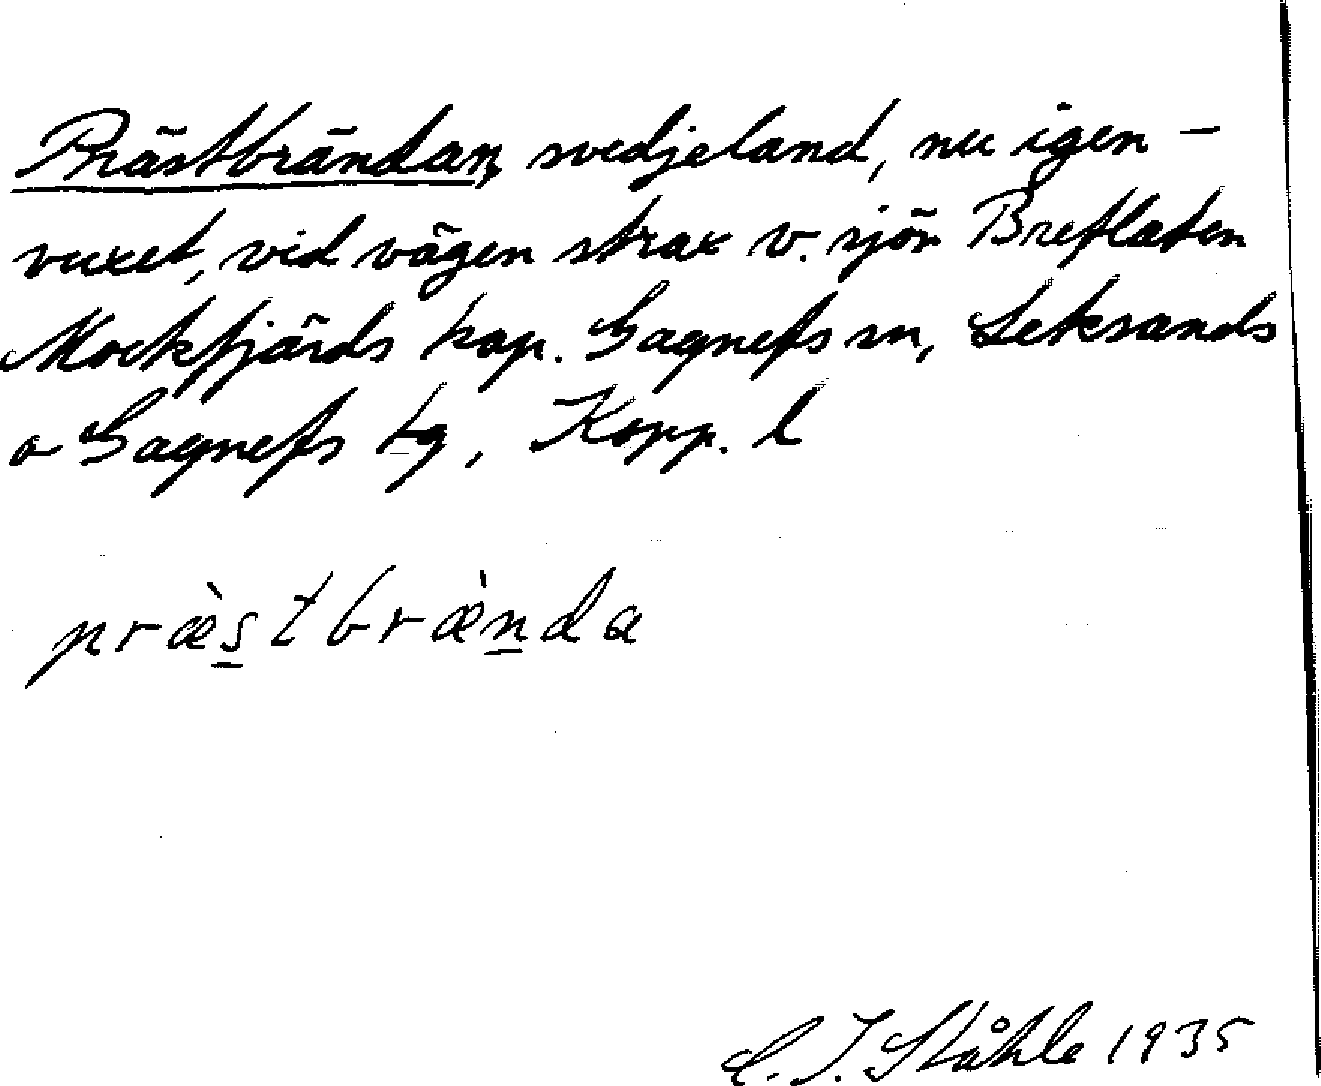 Prästbrändan, svedjeland, nu igen-
vuxet, vid vägen strax v. sjön Breflaten
Mockfjärds kap. Gagnefs sn, Leksands
o Gagnefs tg, Kopp. l
præ̀stbræ̀nda
C. I. Ståhle 1935